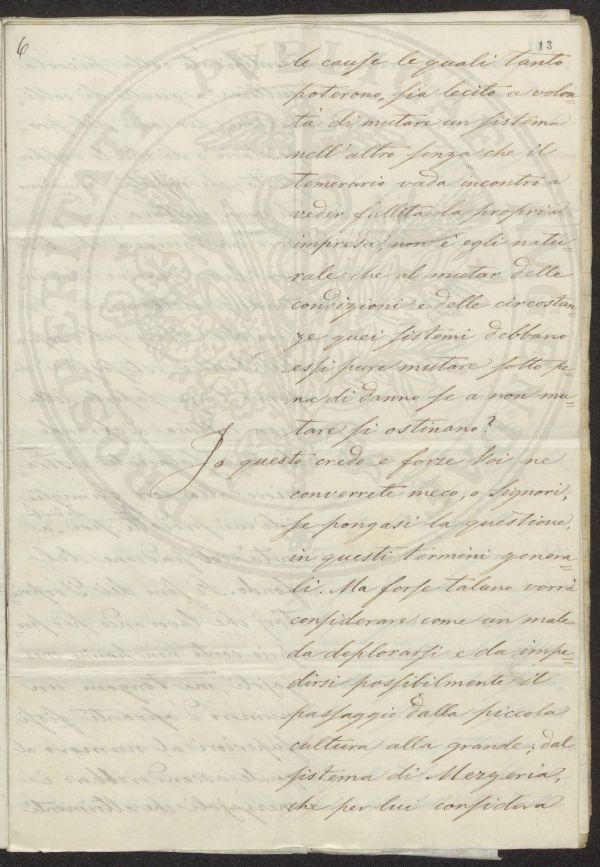 6
13
le cause le quali tanto
poterono, sia lecito a volon=
tà di mutare un sistema
nell'altro senza che il
temerario vada incontro a
veder fallita la propria
impresa, non è egli natu=
rale che al mutar delle
condizioni e delle circostan=
ze quei sistemi debbano
essi pure mutare sotto pe=
na di danno se a non mu=
tare si ostinano?
Io questo credo e forze Voi ne
converrete meco, o Signori,
se pongasi la questione,
in questi termini genera=
li. Ma forse taluno vorrà
considerare come un male
da deplorarsi e da impe=
dirsi possibilmente il
passaggio dalla piccola
cultura alla grande; dal
sistema di Mezzeria,
che per lui considera
PROSPERITATI PVBLICAE